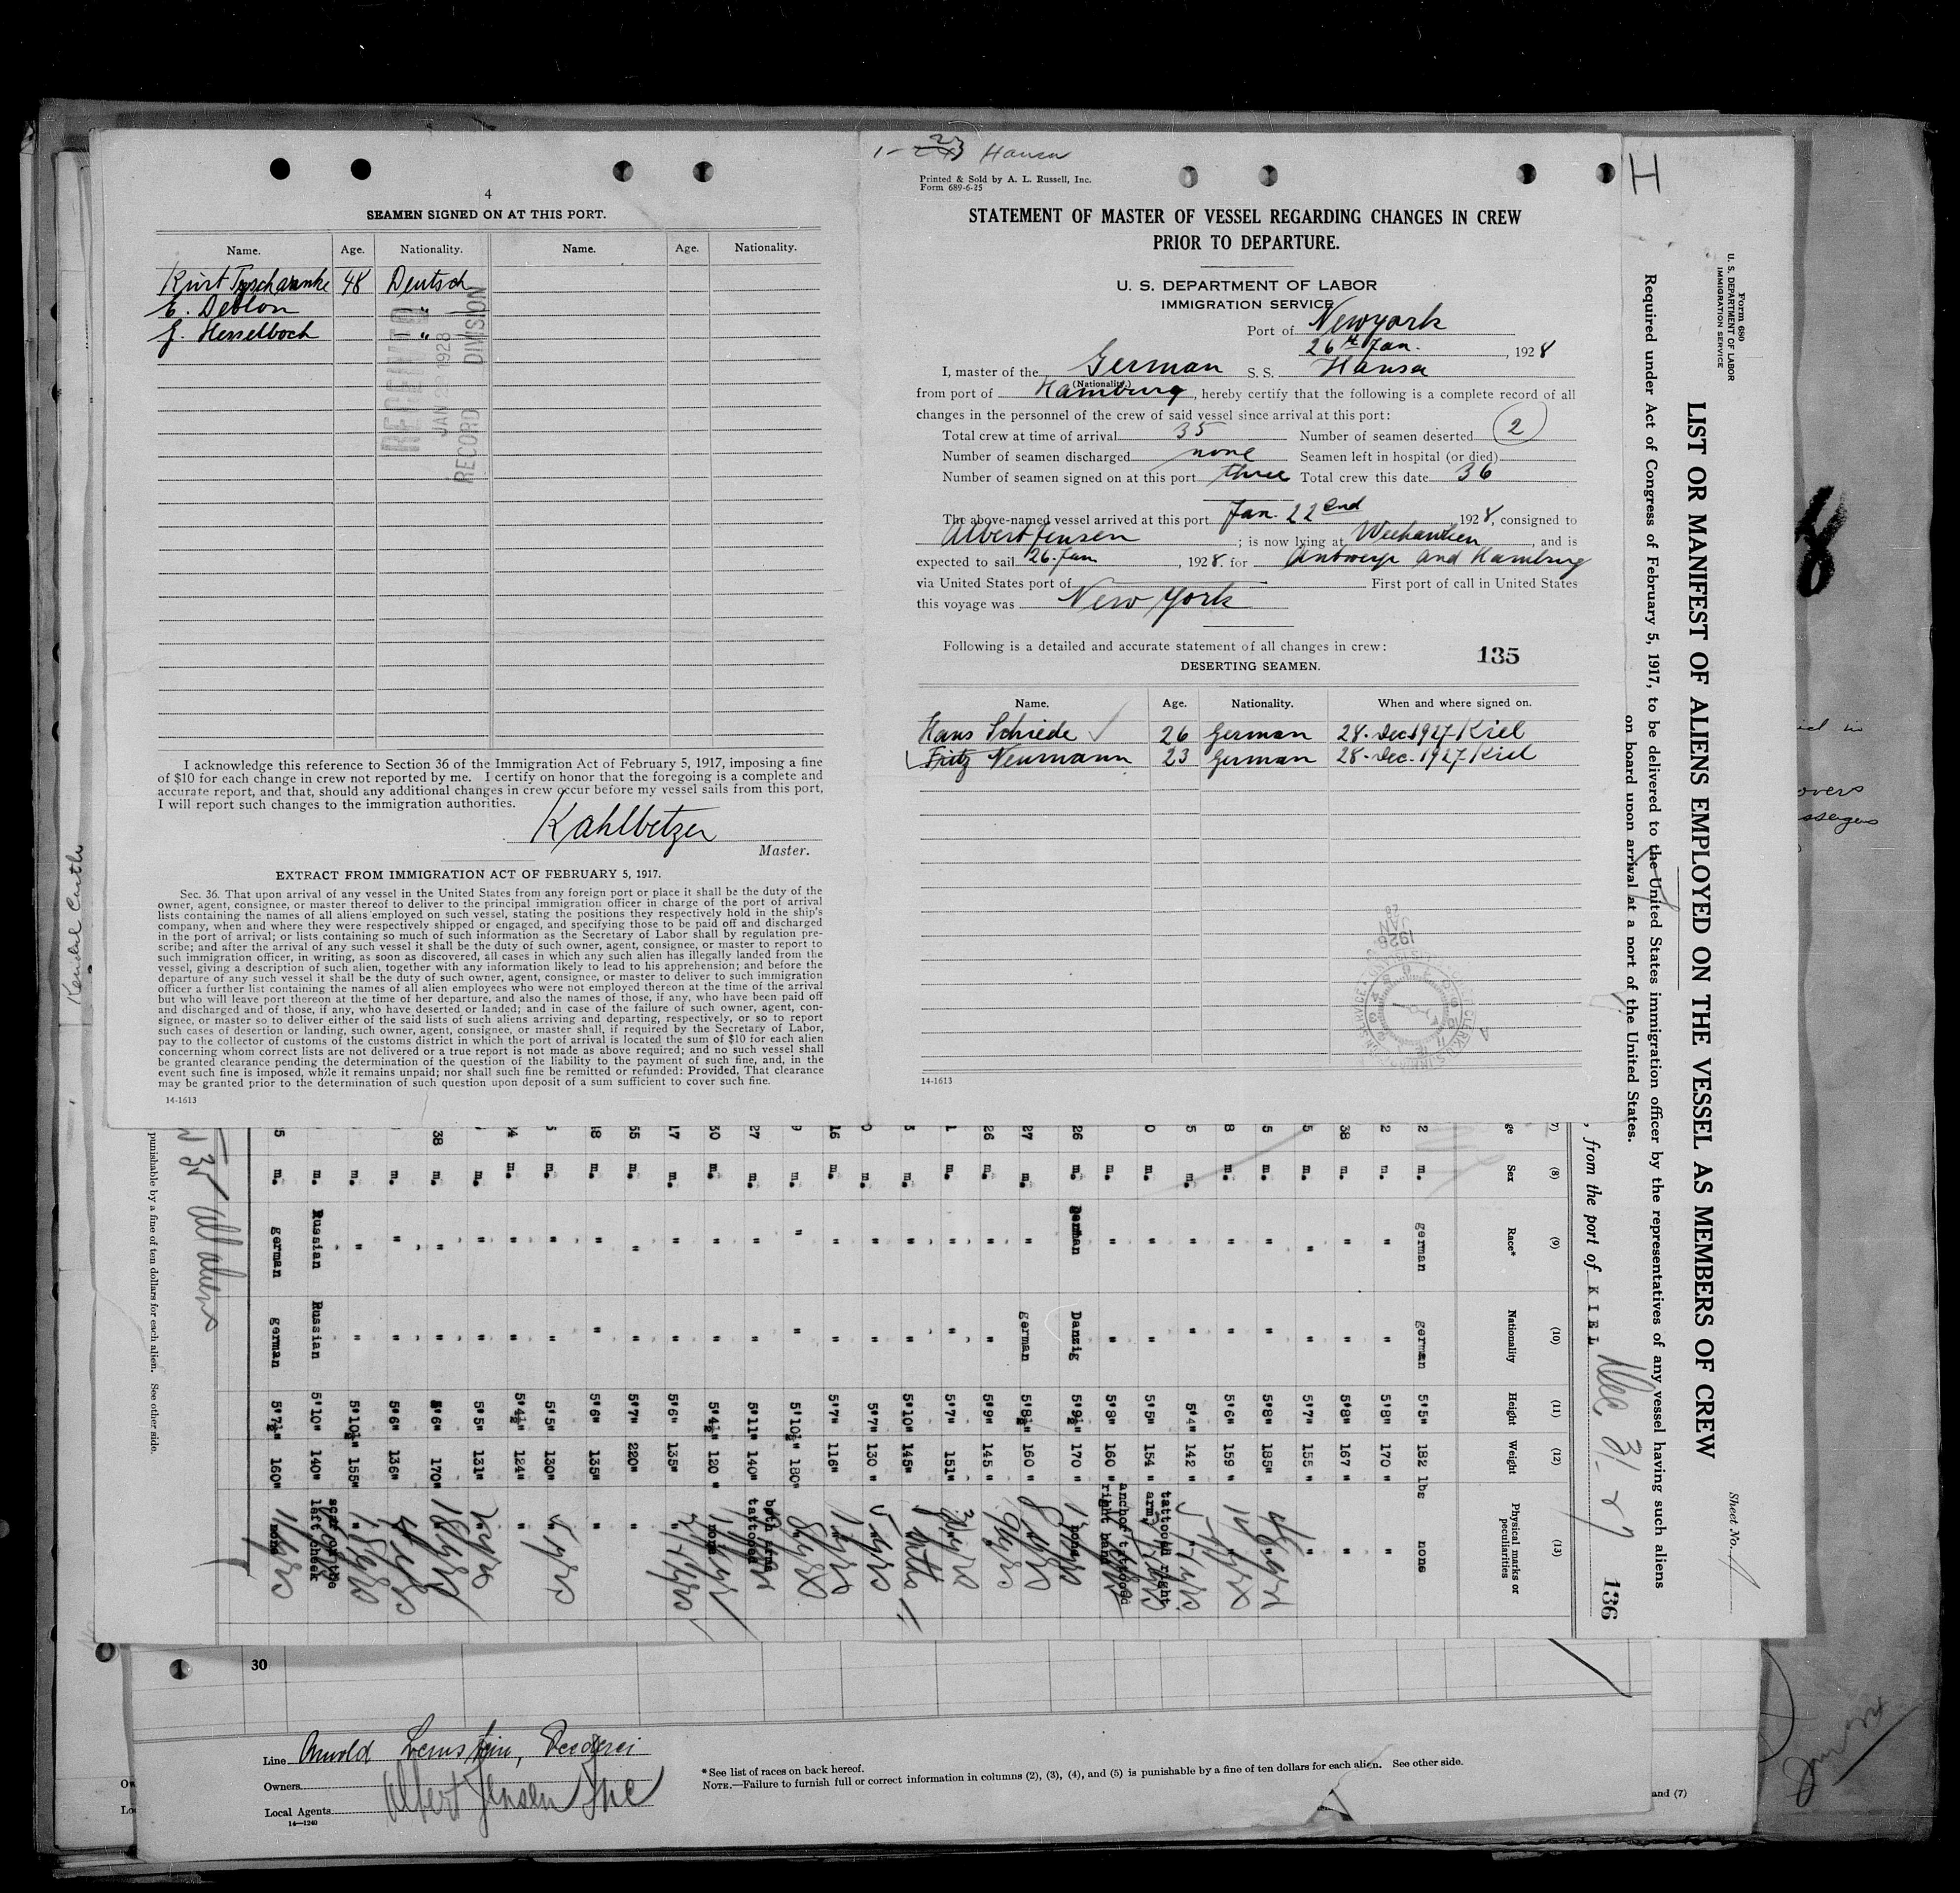 4
SEAMEN SIGNED ON AT THIS PORT.
Name. Age. Nationality. Name. Age. Nationality.
Kurt 48 Deutsch
E. Deblon "
J. Hesselboch "
RECEIVED
JAN 1928
RECORD DIVISION
I acknowledge this reference to Section 36 of the Immigration Act of February 5, 1917, imposing a fine
of $10 for each change in crew not reported by me. I certify on honor that the foregoing is a complete and
accurate report, and that, should any additional changes in crew occur before my vessel sails from this port,
I will report such changes to the immigration authorities.
Kahlbetzer
Master.
EXTRACT FROM IMMIGRATION ACT OF FEBRUARY 5, 1917.
Sec. 36. That upon arrival of any vessel in the United States from any foreign port or place it shall be the duty of the
owner, agent, consignee, or master thereof to deliver to the principal immigration officer in charge of the port of arrival
lists containing the names of all aliens employed on such vessel, stating the positions they respectively hold in the ship's
company, when and where they were respectively shipped or engaged, and specifying those to be paid off and discharged
in the port of arrival; or lists containing so much of such information as the Secretary of Labor shall by regulation pre-
scribe; and after the arrival of any such vessel it shall be the duty of such owner, agent, consignee, or master to report to
such immigration officer, in writing, as soon as discovered, all cases in which any such alien has illegally landed from the
vessel, giving a description of such alien, together with any information likely to lead to his apprehension; and before the
departure of any such vessel it shall be the duty of such owner, agent, consignee, or master to deliver to such immigration
officer a further list containing the names of all alien employees who were not employed thereon at the time of the arrival
but who will leave port thereon at the time of her departure, and also the names of those, if any, who have been paid off
and discharged and of those, if any, who have deserted or landed; and in case of the failure of such owner, agent, con-
signee, or master so to deliver either of the said lists of such aliens arriving and departing, respectively, or so to report
such cases of desertion or landing, such owner, agent, consignee, or master shall, if required by the Secretary of Labor,
pay to the collector of customs of the customs district in which the port of arrival is located the sum of $10 for each alien
concerning whom correct lists are not delivered or a true report is not made as above required; and no such vessel shall
be granted clearance pending the determination of the question of the liability to the payment of such fine, and, in the
event such fine is imposed, while it remains unpaid; nor shall such fine be remitted or refunded: Provided, That clearance
may be granted prior to the determination of such question upon deposit of a sum sufficient to cover such fine.
14-1613
Hansa
Printed & Sold by A. L. Russell, Inc.
Form 689-6-25
STATEMENT OF MASTER OF VESSEL REGARDING CHANGES IN CREW
PRIOR TO DEPARTURE.
U. S. DEPARTMENT OF LABOR
IMMIGRATION SERVICE
Port of Newyork
26th Jan. , 1928
I, master of the German S. S. Hansa
(Nationality.)
from port of Hamburg, hereby certify that the following is a complete record of all
changes in the personnel of the crew of said vessel since arrival at this port:
Total crew at time of arrival 35 Number of seamen deserted 2
Number of seamen discharged none Seamen left in hospital (or died)
Number of seamen signed on at this port three Total crew this date 36
The above-named vessel arrived at this port Jan. 22end 1928, consigned to
Albert Jensen ; is now lying at Weehawken, and is
expected to sail 26. Jan , 1928. for Antwerp and Hamburg
via United States port of First port of call in United States
this voyage was New York
Following is a detailed and accurate statement of all changes in crew:
135
DESERTING SEAMEN.
Name. Age. Nationality. When and where signed on.
Hans Schriede 26 German 28. Dec. 1927 Kiel
Fritz Neumann 23 German 28. Dec. 1927 Kiel
14-1613
H
Form 680
U. S. DEPARTMENT OF LABOR
IMMIGRATION SERVICE
Sheet No. 1
LIST OR MANIFEST OF ALIENS EMPLOYED ON THE VESSEL AS MEMBERS OF CREW
Required under Act of Congress of February 5, 1917, to be delivered to the United States immigration officer by the representatives of any vessel having such aliens
on board upon arrival at a port of the United States.
, from the port of KIEL Dec 31-27
136
(8) (9) (10) (11) (12) (13)
Sex Race* Nationality Height Weight Physical marks or peculiarities
2 m. german german 5'5" 182 lbs none
2 m. " " 5'8" 170 " "
38 m. " " 5'8" 167 " "
5 m. " " 5'7" 155 " "
5 m. " " 5'8" 185" "
8 m. " " 5'6" 159 "
5 m. " " 5'4" 142 "
0 m. " " 5'5" 154 " tattooed right arm,
m. " " 5'8" 160 " anchor tattooed right hand
26 m. German Danzig 5'9½" 170 " none
27 m. " german 5'8½" 160 "
26 m. " " 5'9" 145 "
1 m. " " 5'7" 151"
m. " " 5'10" 145"
0 m. " " 5'7" 130 "
16 m. " " 5'7" 116"
9 m. " " 5'10½" 180"
27 m. " " 5'11" 140" both arms tattooed
30 m. " " 5'4½" 120 " none
17 m. " " 5'6" 135" "
55 m. " " 5'7" 220" "
18 m. " " 5'6" 135" "
m. " " 5'5" 130" "
34 m. " " 5'4½" 124" "
m. " " 5'5" 131"
38 m. " " 5'6" 170"
m. " " 5'6" 136"
m. " " 5'10½" 155"
m. Russian Russian 5'10" 140" scar on the left cheek
5 m. german german 5'7½" 160" none
35 all aliens
punishable by a fine of ten dollars for each alien. See other side.
Kendal Castle
30
Line Arnold Bernstein, Reederei
Owners
Local Agents Albert Jensen Inc
14-1240
*See list of races on back hereof.
NOTE.—Failure to furnish full or correct information in columns (2), (3), (4), and (5) is punishable by a fine of ten dollars for each alien. See other side.
and (7)